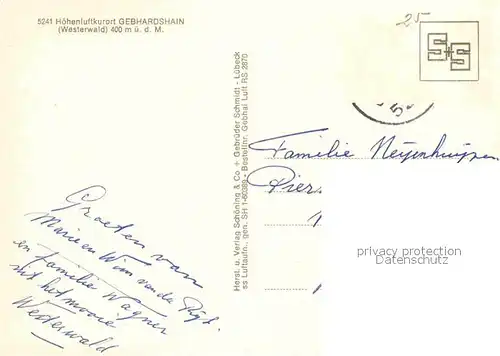 5241 Höhenluftkurort GEBHARDSHAIN
(Westerwald) 400 m ü. d. M.
25
S+S
Horst. u. Verlag Schöning & Co + Gebrüder Schmidt - Lübeck
ss Luftaufn., gen. SH 1-60389 - Bestellnr. Gebhai Luft RS 2870
Familie
Pier.
privacy protection
Datenschutz
Groeten van
Marie en Wim van de
en familie Wagner
uit het mooie
Westerwald